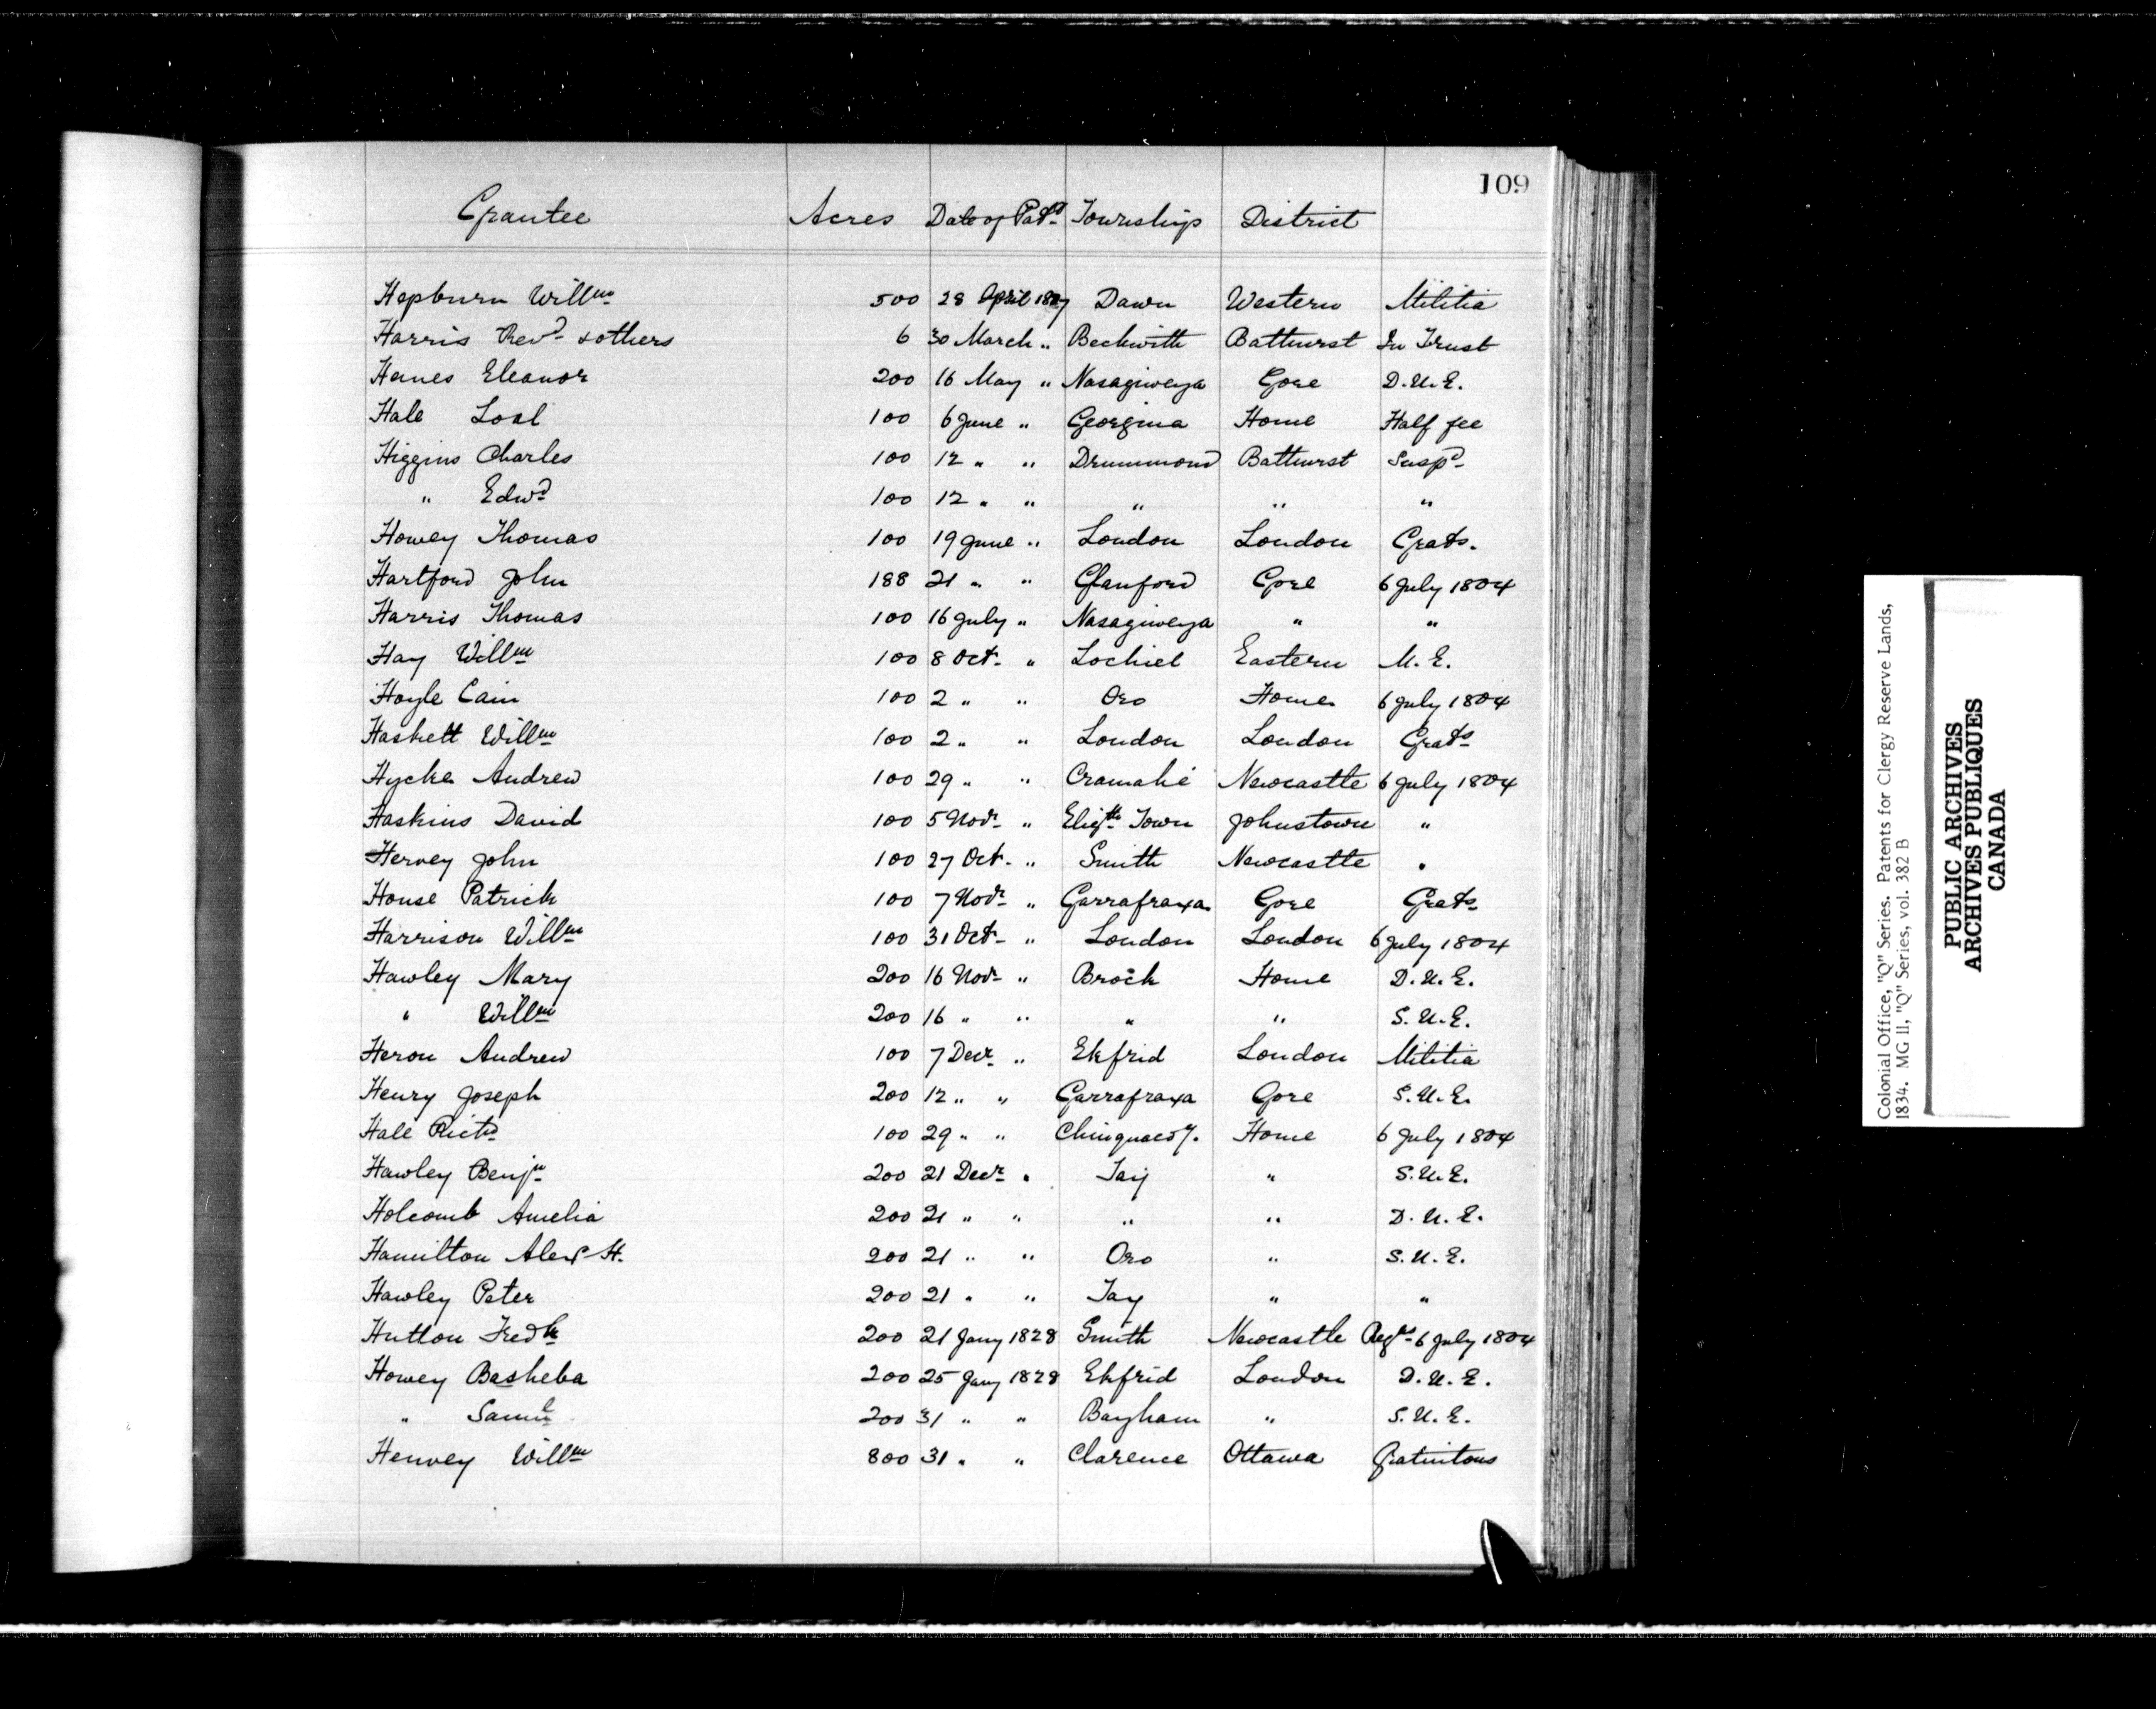 109
Grantee Acres Date of Patt Township District
Hepburn Willm 500 28 April 1827 Dawn Western Militia
Harris Revd & others 6 30 March " Beckwith Bathurst In Trust
Hanes Eleanor 200 16 May " Nasagiweya Gore D.U.E.
Hale Loal 100 6 June " Georgina Home Half fee
Higgins Charles 100 12 " " Drummond Bathurst Suspd
" Edwd 100 12 " " " " "
Howey Thomas 100 19 June " London London Grats.
Hartford John 188 21 " " Glanford Gore 6 July 1804
Harris Thomas 100 16 July " Nasagiweya " "
Hay Willm 100 8 Oct. " Lochiel Eastern M.E.
Hoyle Cain 100 2 " " Oro Home 6 July 1804
Haskett Willm 100 2 " " London London Grats
Hycke Andrew 100 29 " " Cramahé Newcastle 6 July 1804
Haskins David 100 5 Novr " Elizth Town Johnstown "
Hervey John 100 27 Oct. " Smith Newcastle "
House Patrick 100 7 Novr " Garrafraxa Gore Grats
Harrison Willm 100 31 Oct. " London London 6 July 1804
Hawley Mary 200 16 Novr " Brock Home D.U.E.
" Willm 200 16 " " " " S.U.E.
Heron Andrew 100 7 Decr " Ekfrid London Militia
Henry Joseph 200 12 " " Garrafraxa Gore S.U.E.
Hale Richd 100 29 " " Chinguacoy. Home 6 July 1804
Hawley Benjn 200 21 Decr " Tay " S.U.E.
Holcomb Amelia 200 21 " " " " D.U.E.
Hamilton Alexr H. 200 21 " " Oro " S.U.E.
Hawley Peter 200 21 " " Tay " "
Hutton Fredk 200 21 Jany 1828 Smith Newcastle Regns 6 July 1804
Howey Basheba 200 25 Jany 1828 Ekfrid London D.U.E.
" Saml 200 31 " " Bayham " S.U.E.
Henvey Willm 800 31 " " Clarence Ottawa Gratuitous
Colonial Office, "Q" Series. Patents for Clergy Reserve Lands,
1834. MG II, "Q" Series, vol. 382 B
PUBLIC ARCHIVES
ARCHIVES PUBLIQUES
CANADA